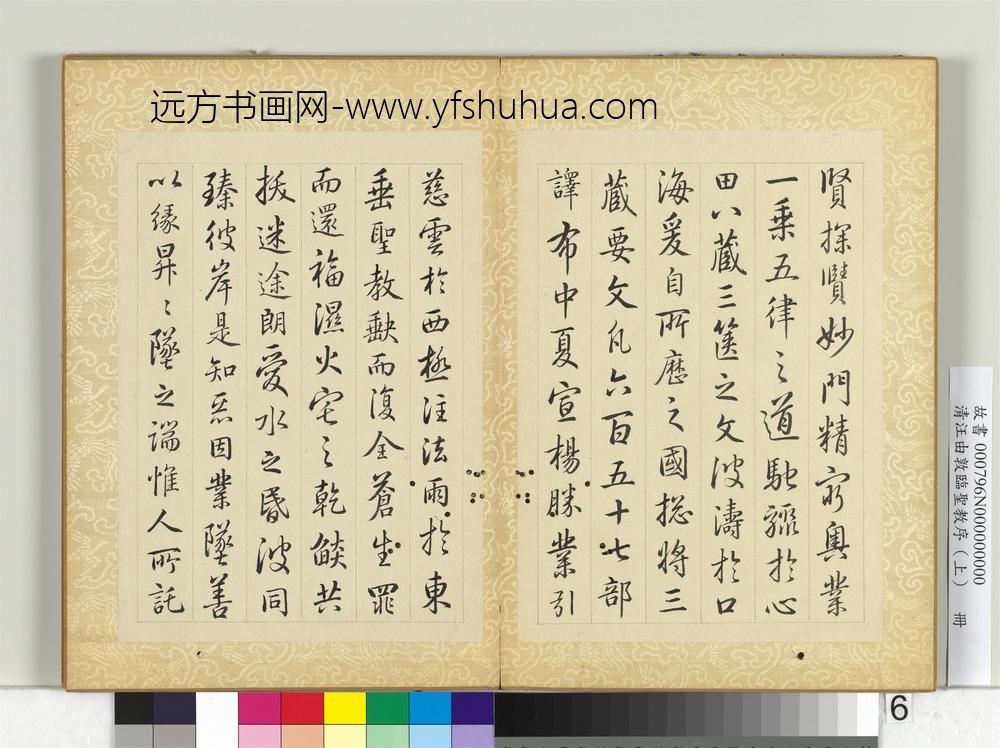 远方书画网-www.yfshuhua.com
賢探賾妙門精窮奧業
一乗五律之道馳驟於心
田八蔵三篋之文波濤於口
海爰自所歷之國揔將三
蔵要文凡六百五十七部
譯布中夏宣楊勝業引
慈雲於西極注法雨於東
垂聖教缺而復全蒼生罪
而還福濕火宅之乾燄共
拔迷途朗愛水之昏波同
臻彼岸是知惡因業墜善
以緣昇昇墜之端惟人所託
故書 000796N000000000
清汪由敦臨聖教序（上） 冊
6